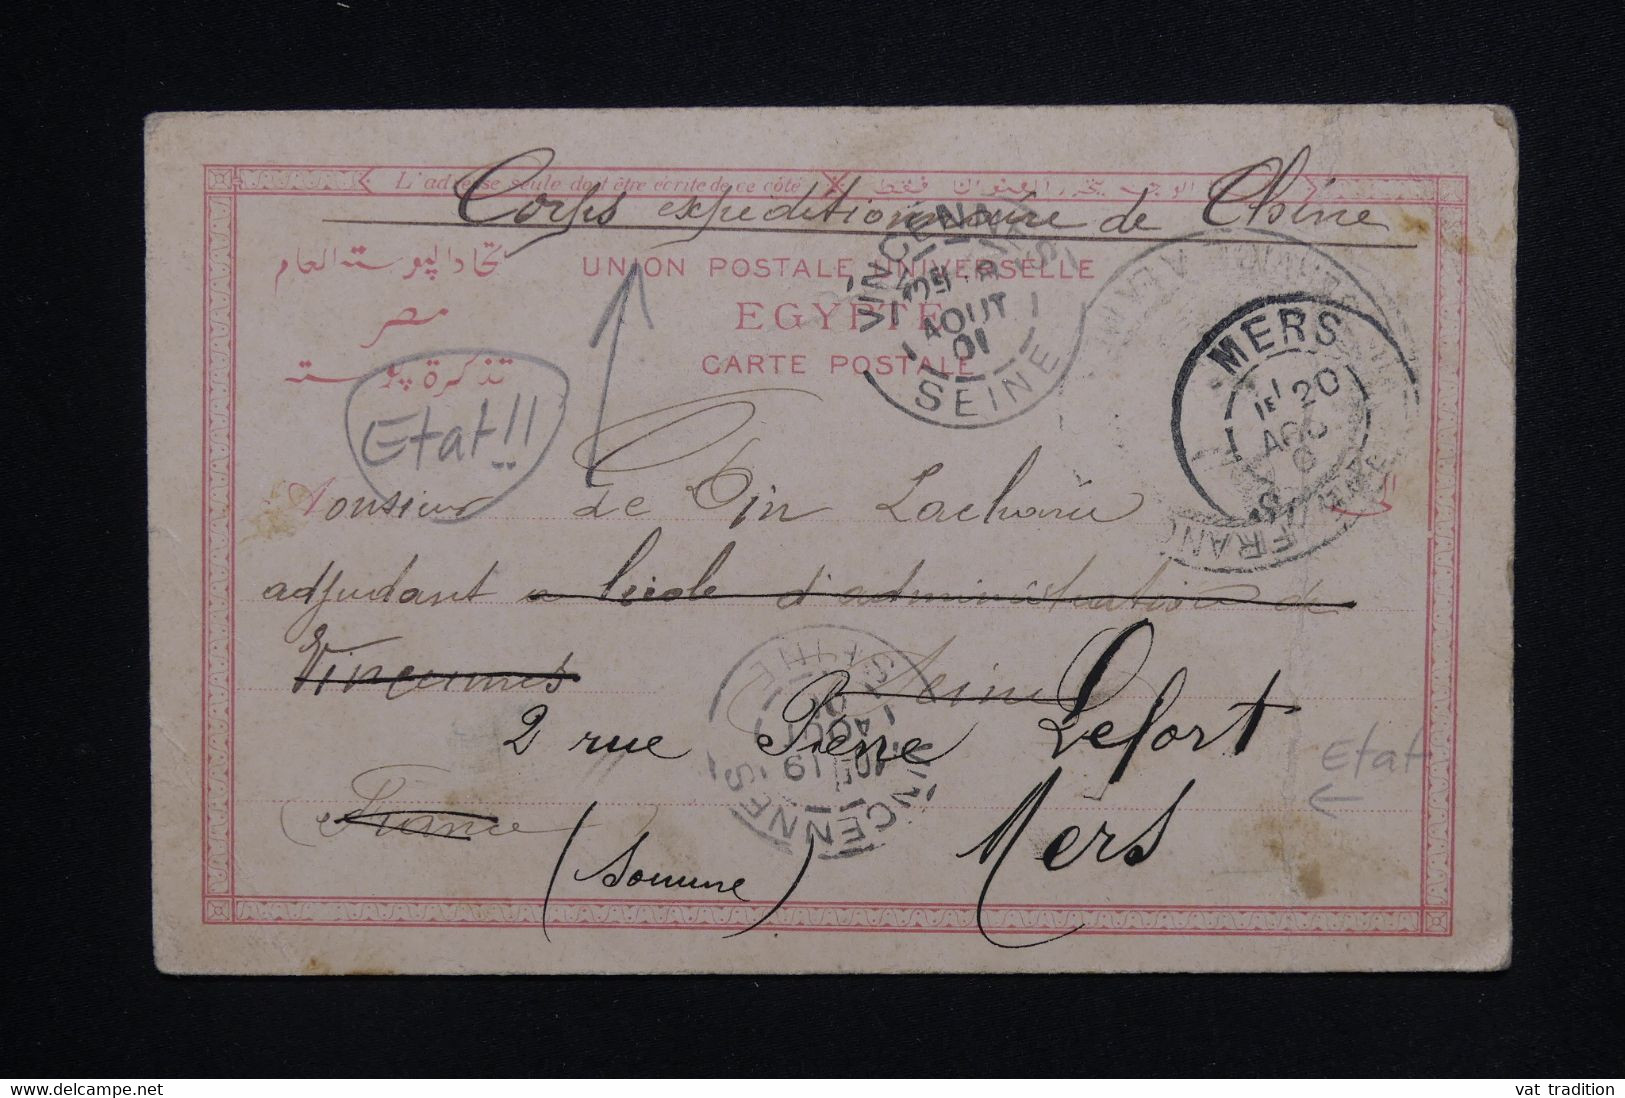 L'adresse seule doit être écrite de ce côté
Corps expéditionnaire de Chine
اتحاد البوسته العام
UNION POSTALE UNIVERSELLE
مصر
EGYPTE
تذكرة بوسته
CARTE POSTALE
VINCENNES
AOUT
01
SEINE
MERS
20
Etat!!
Monsieur de Pin Lacharie
adjudant a l'école d'administration de
Vincennes Seine
2 rue Pierre Lefort
Etat
(France)
Mers
(Somme)
VINCENNES
19
AOUT
01
SEINE
vat tradition